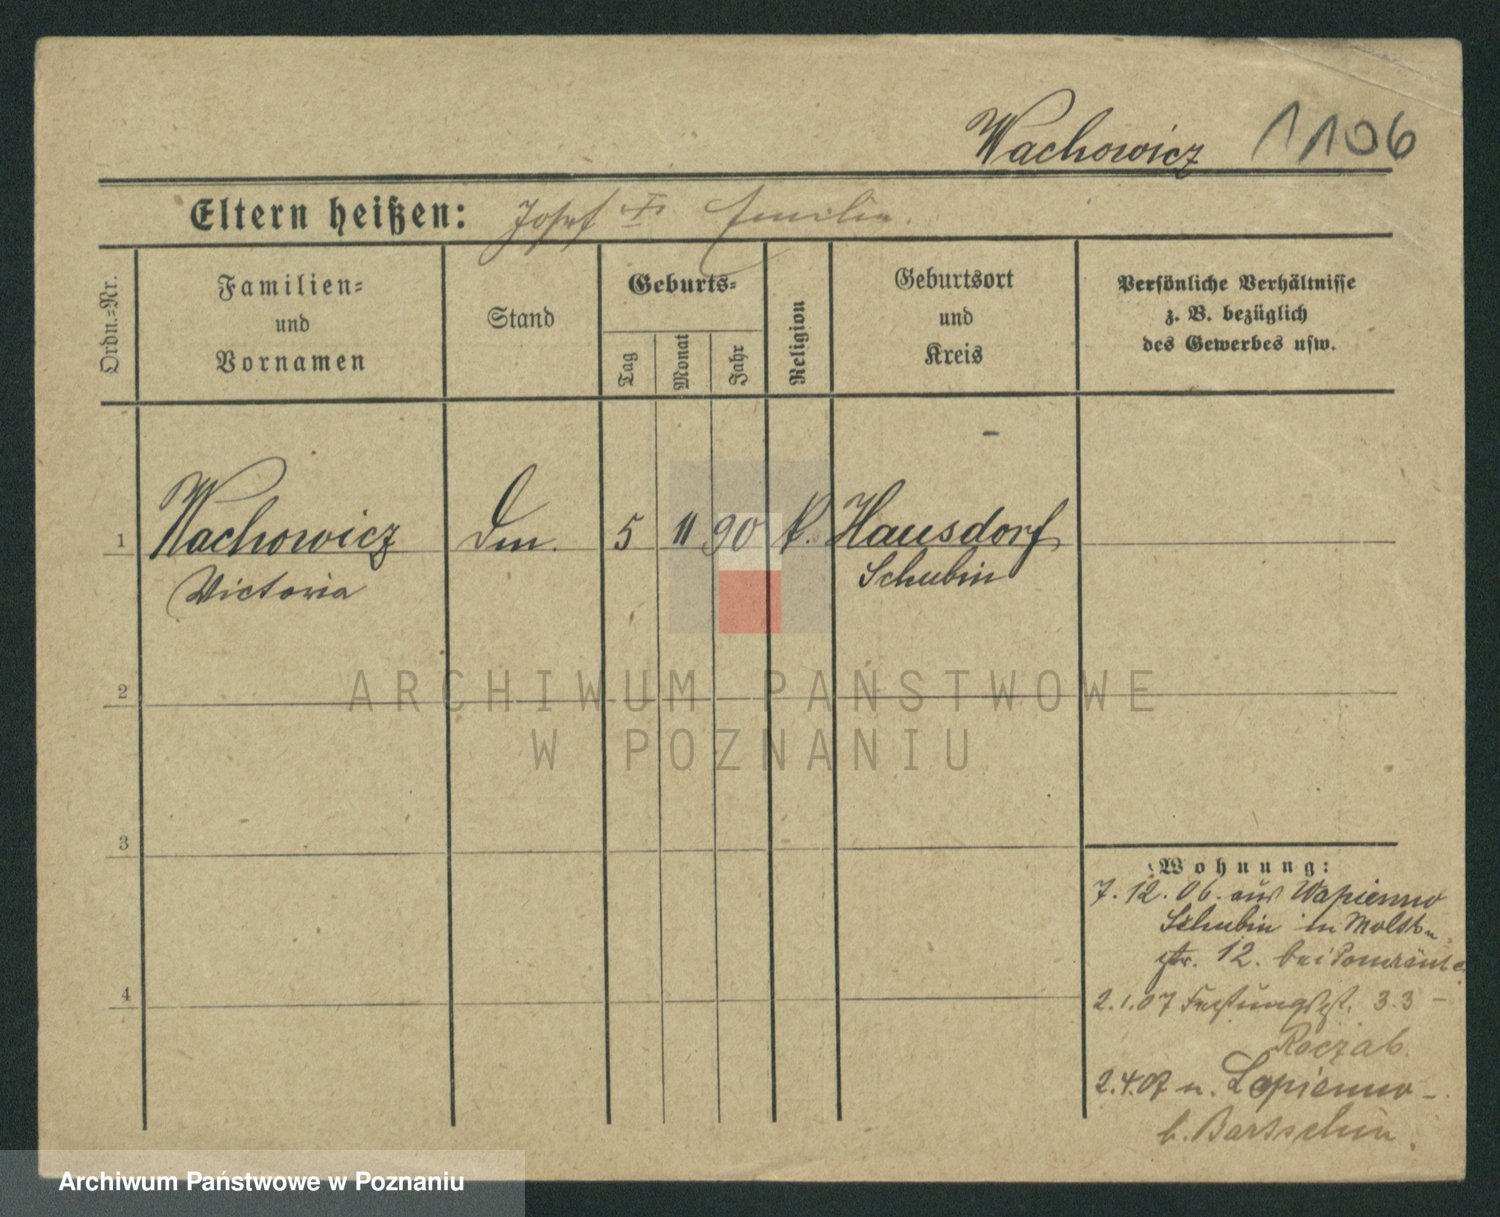 Wachowicz 1106
Eltern heißen: Josef Emilie.
Ordn.=Nr.
Familien=
und
Vornamen
Stand
Geburts=
Tag
Monat
Jahr
Religion
Geburtsort
und
Kreis
Persönliche Verhältnisse
z. B. bezüglich
des Gewerbes usw.
1 Wachowicz 5 11 90 k. Hausdorf
Victoria Schubin
2
3
4
Wohnung:
7. 12. 06. aus Wapienno
Schubin in
str. 12. bei
2.1.07 Festungsst. 33 -
Roczab.
2.4.07 n. Lopienno -
b. Bartschin.
ARCHIWUM PAŃSTWOWE
W POZNANIU
Archiwum Państwowe w Poznaniu